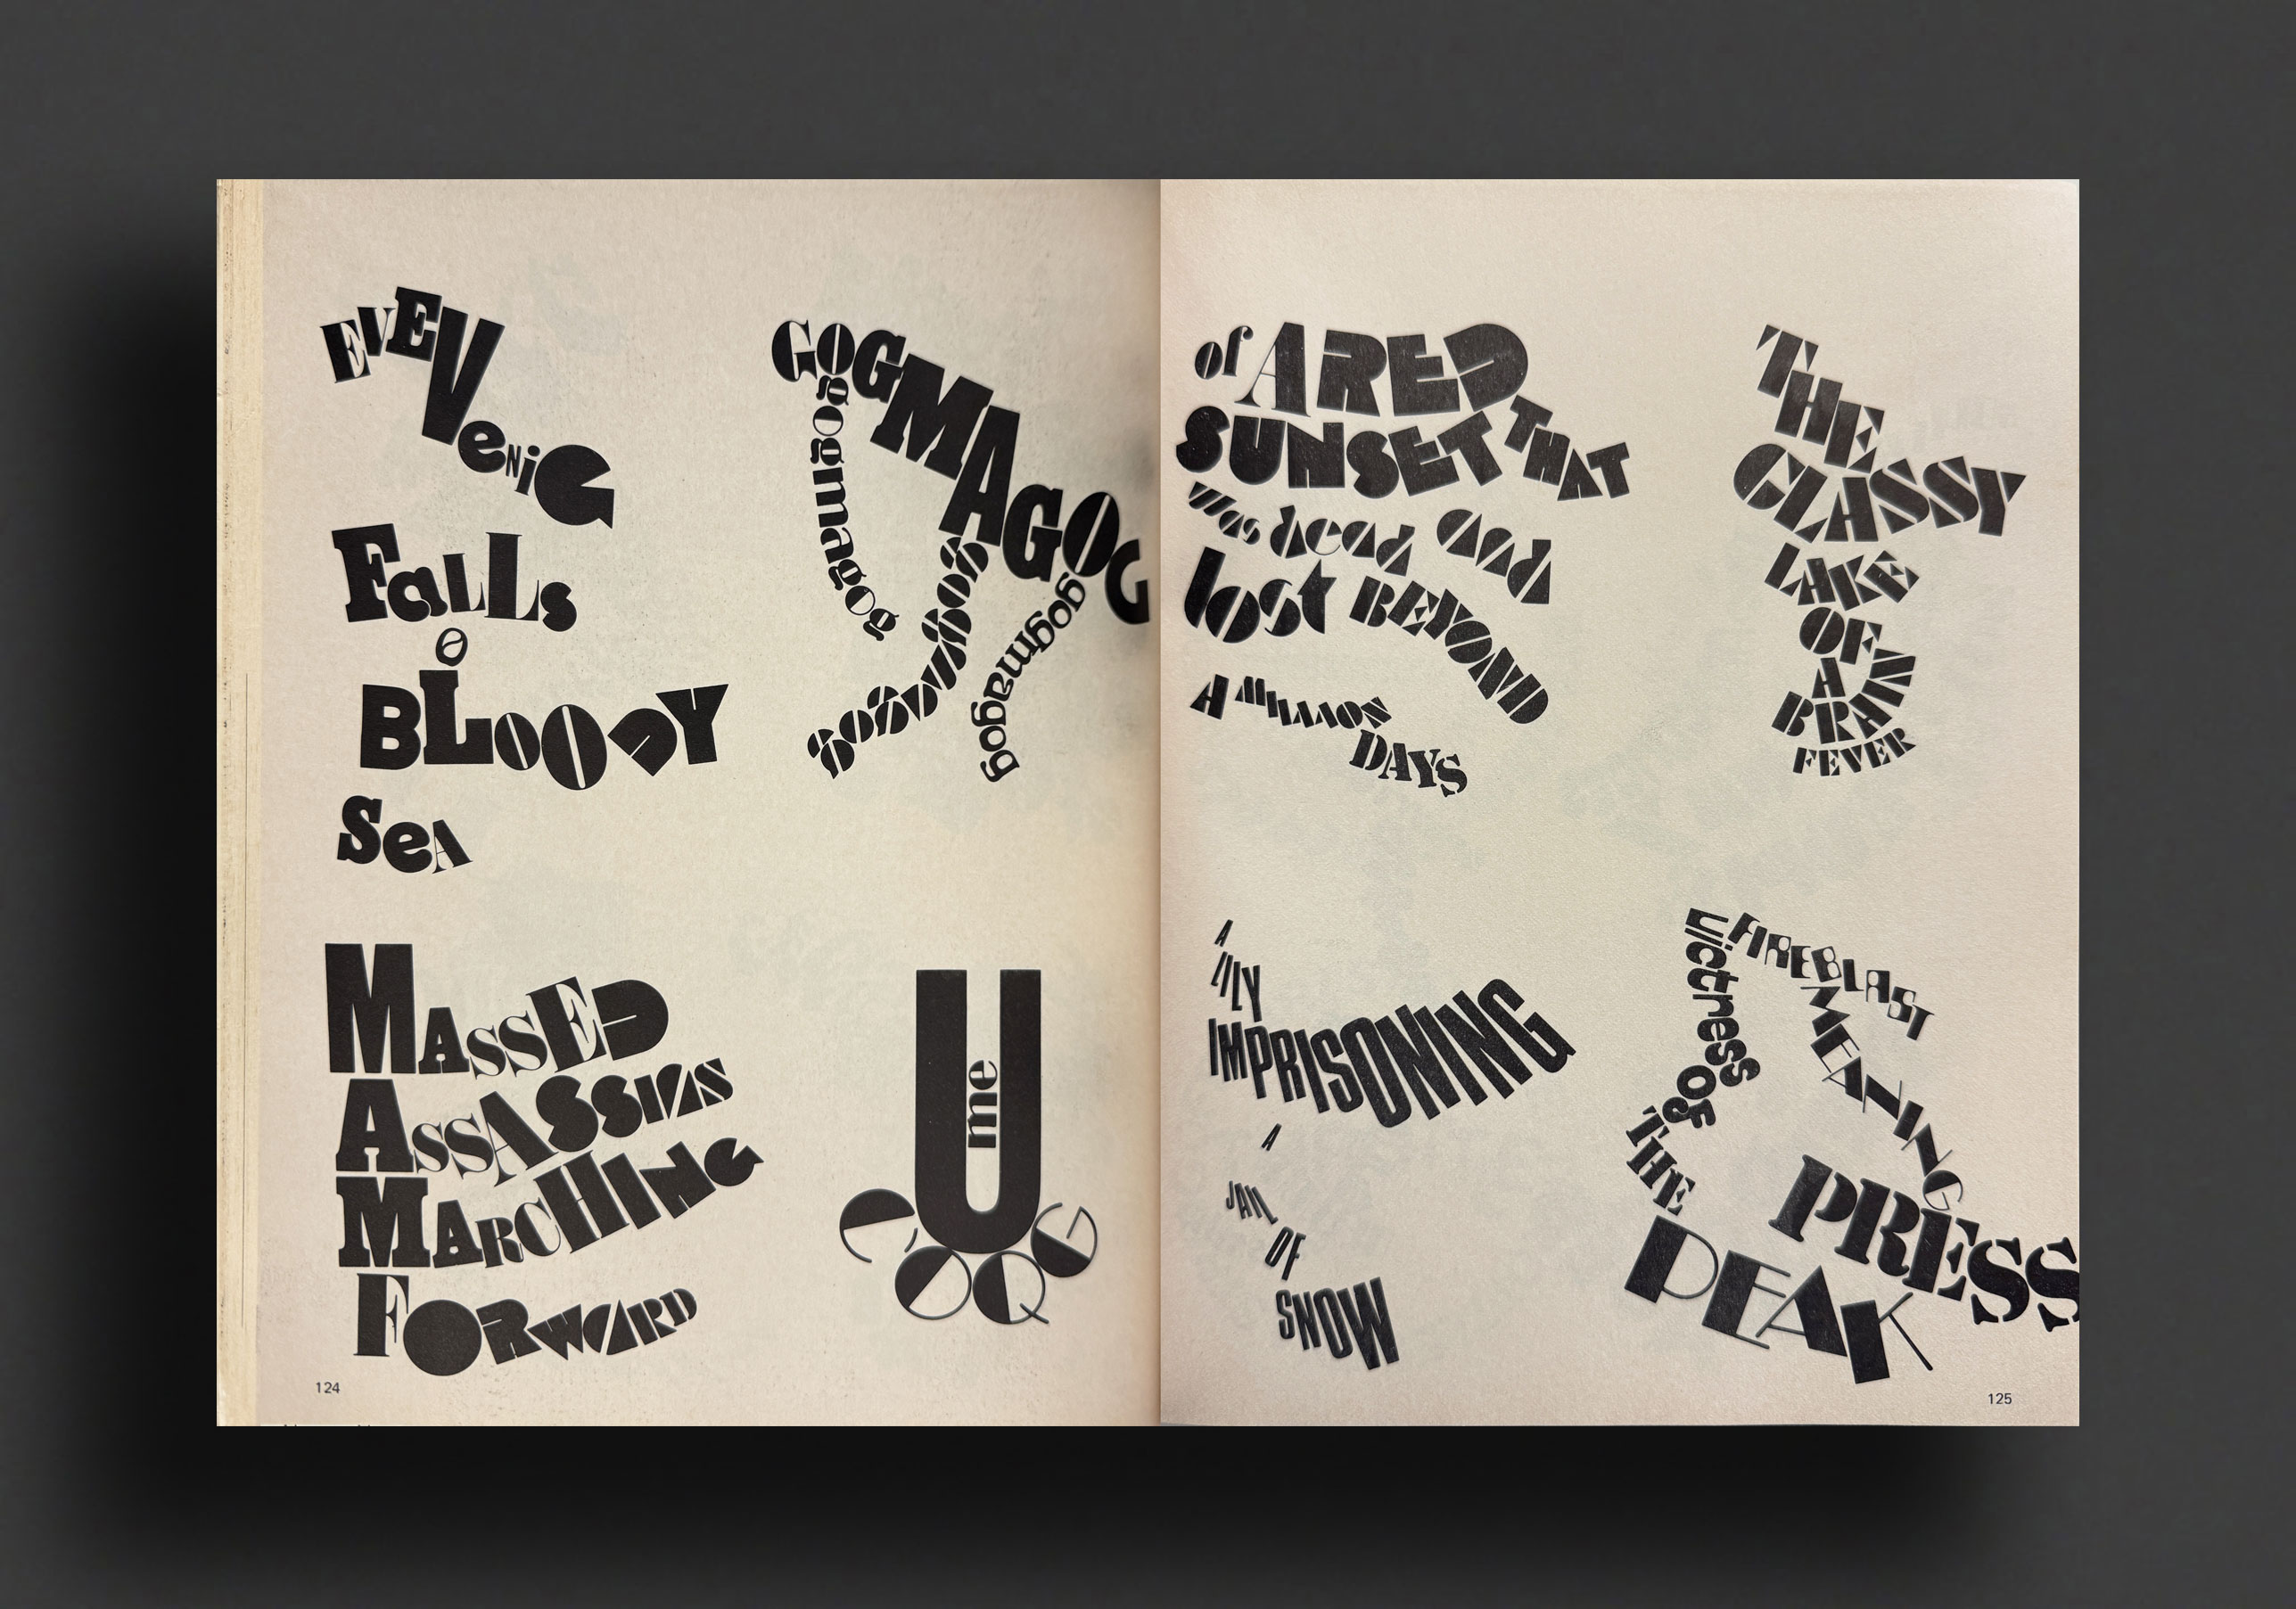 EVEVeNiG
FaLLs
O
BLOODY
SeA
GOGMAGOG
gogmagog
gogmagog
gogmagog
MASSED
ASSASSINS
MARCHING
FORWARD
U
me
124
of A RED
SUNSET THAT
was dead and
lost BEYOND
A MILLION
DAYS
THE
GLASSY
LAKE
OF
A
BRAIN
FEVER
A
LILY
IMPRISONING
A
JAIL
OF
SNOW
FIREBLAST
Victress
OF
THE
PEAK
MEANING
PRESS
125